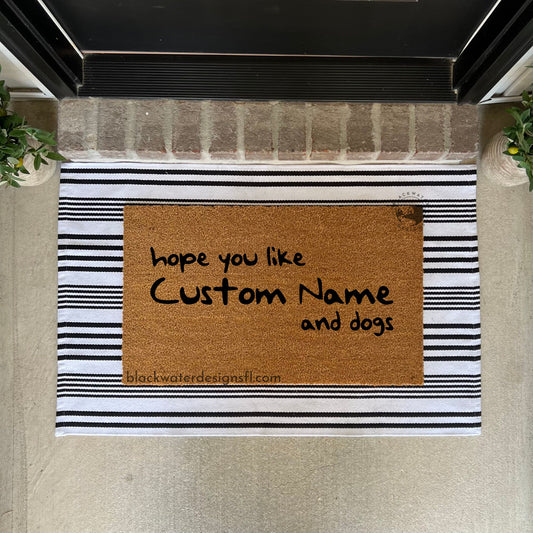 hope you like
Custom Name
and dogs
blackwaterdesignsfl.com